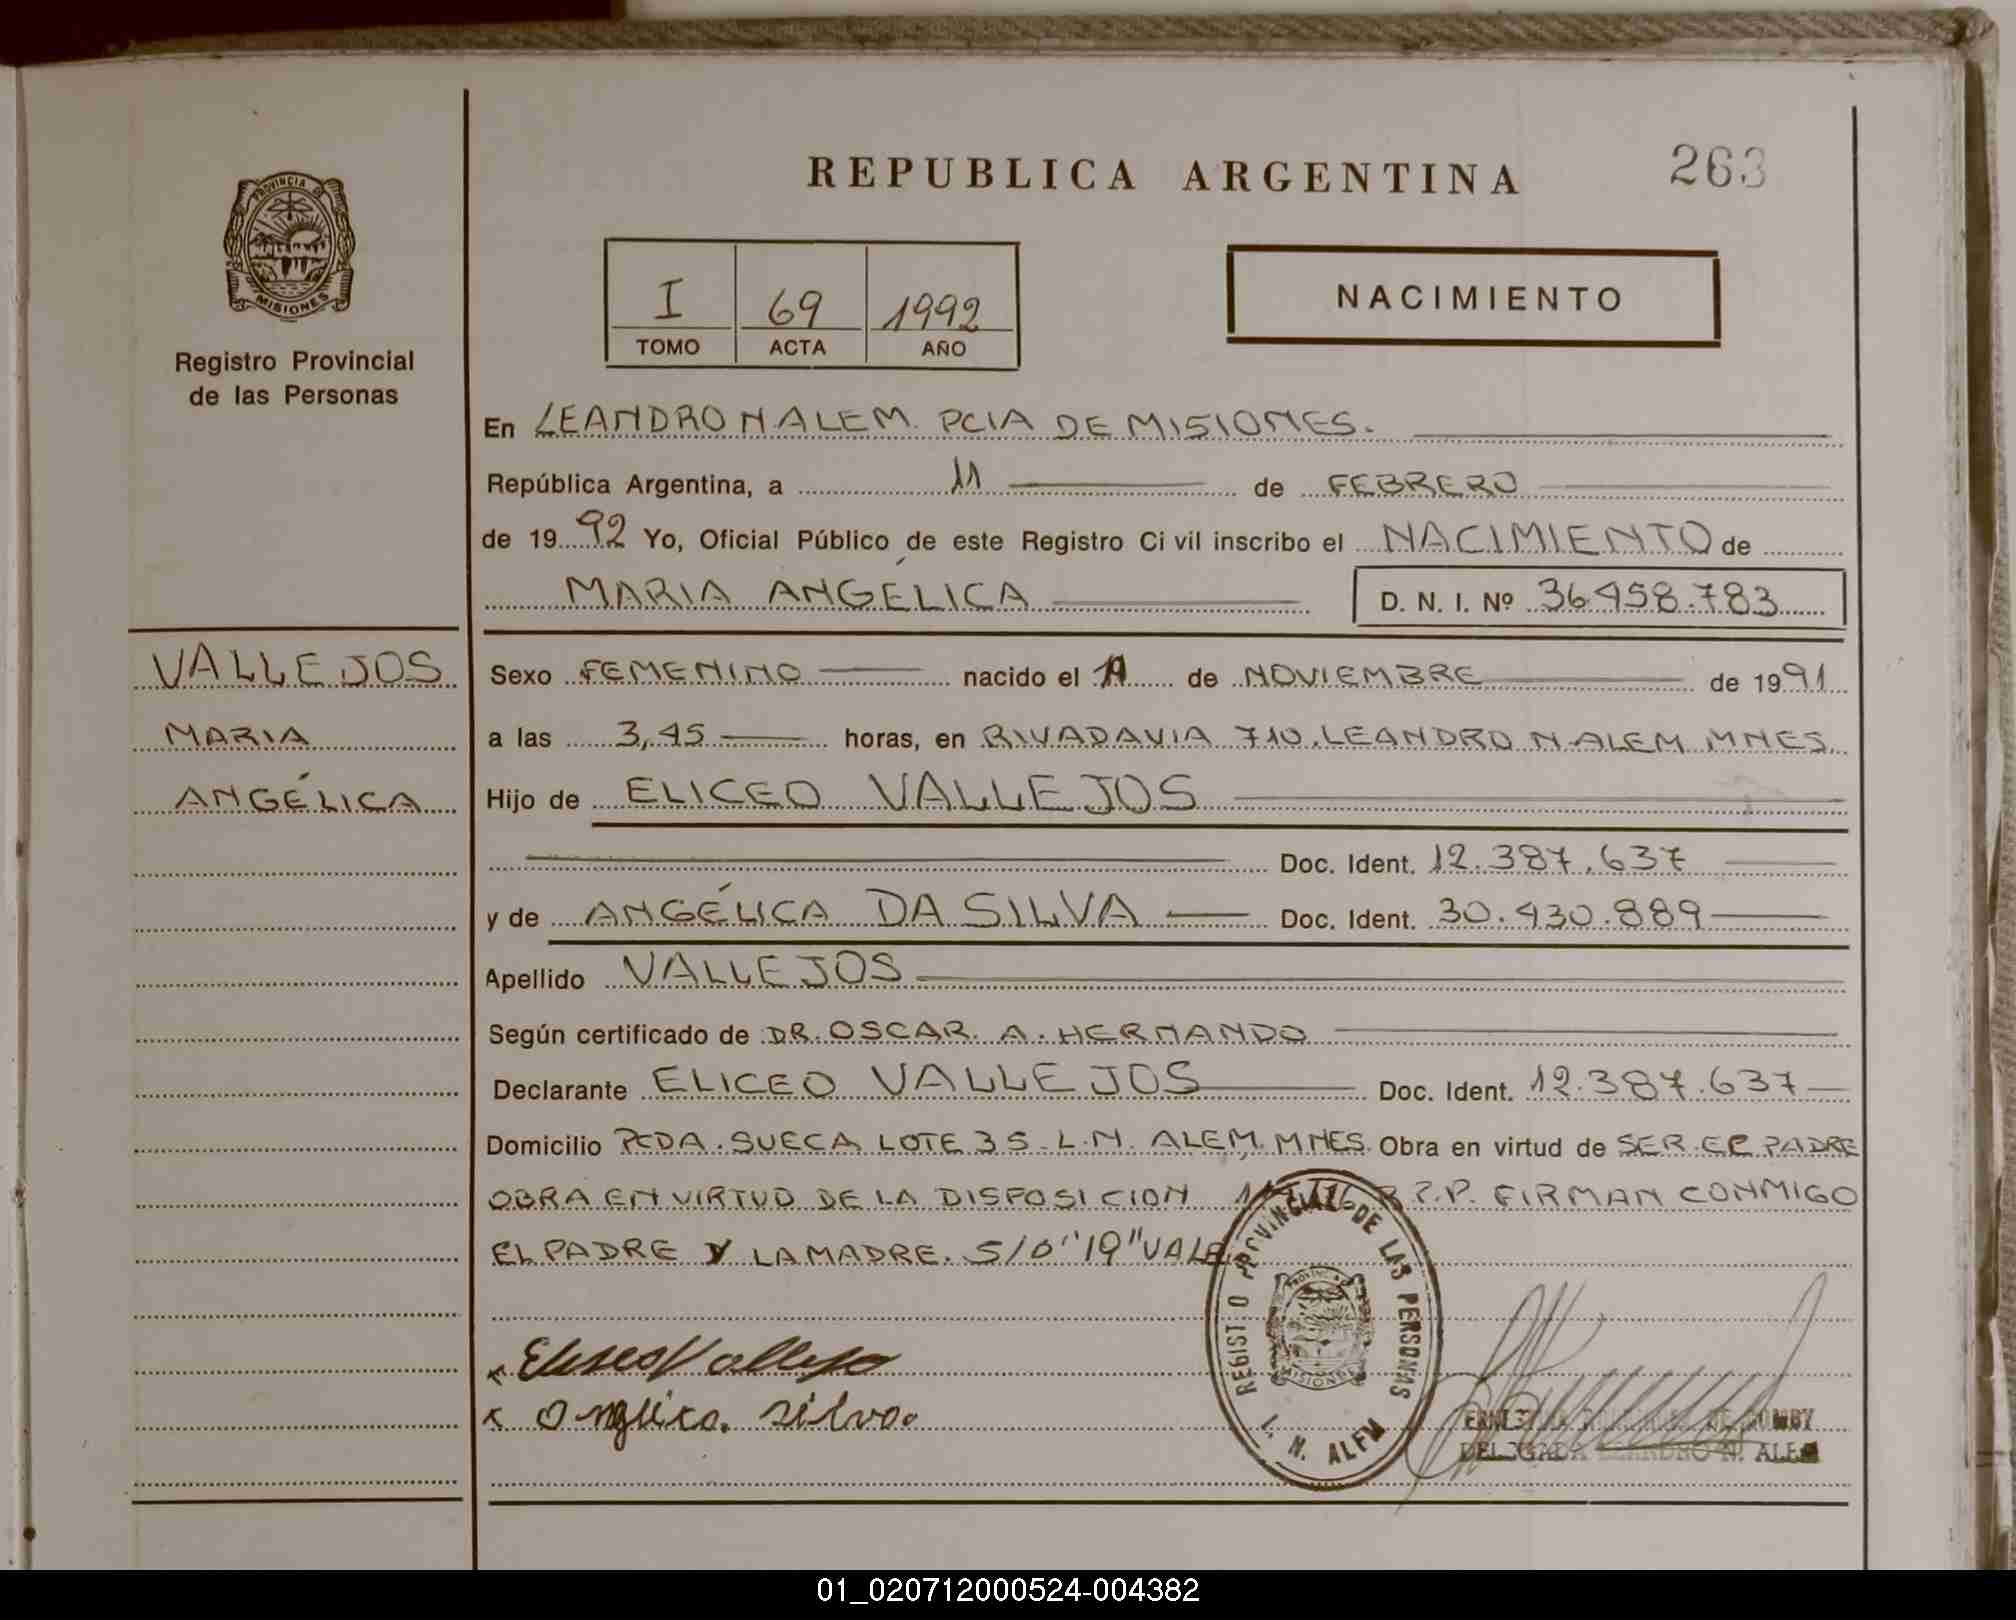 REPUBLICA ARGENTINA
263
PROVINCIA D
MISIONES
Registro Provincial
de las Personas
I 69 1992
TOMO ACTA AÑO
NACIMIENTO
En LEANDRO N ALEM PCIA DE MISIONES.
República Argentina, a 11 de FEBRERO
de 1992 Yo, Oficial Público de este Registro Civil inscribo el NACIMIENTO de
MARIA ANGÉLICA D. N. I. Nº 36.458.783
VALLEJOS
MARIA
ANGÉLICA
Sexo FEMENINO nacido el de NOVIEMBRE de 1991
a las 3,45 horas, en RIVADAVIA 710. LEANDRO N ALEM MNES
Hijo de ELICEO VALLEJOS
Doc. Ident. 12.387.637
y de ANGÉLICA DA SILVA Doc. Ident. 30.430.889
Apellido VALLEJOS
Según certificado de DR. OSCAR A. HERNANDO
Declarante ELICEO VALLEJOS Doc. Ident. 12.387.637
Domicilio PCDA. SUECA LOTE 35 - L.N. ALEM. MNES. Obra en virtud de SER EL PADRE
OBRA EN VIRTUD DE LA DISPOSICION R.P.P. FIRMAN CONMIGO
EL PADRE Y LA MADRE. S/O "19" VALE
REGISTRO PROVINCIAL DE LAS PERSONAS
L. N. ALEM
MISIONES
Eliseo Vallejo
Angelica. silva.
DELEGADA LEANDRO N. ALEM
01_020712000524-004382